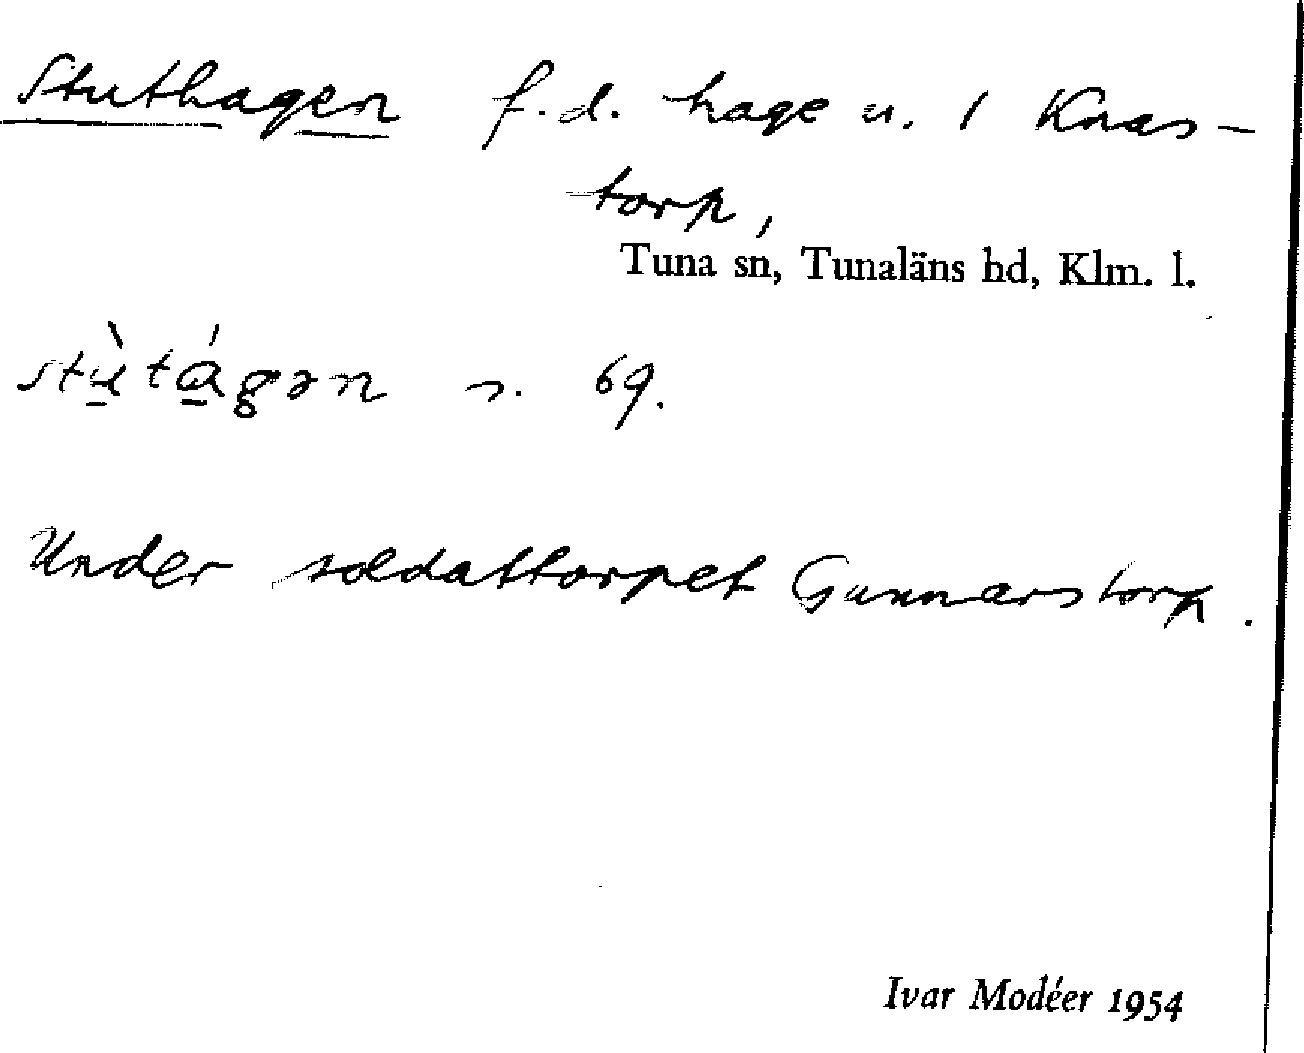 Stuthagen f.d. hage u. 1 Knas-
torp,
Tuna sn, Tunaläns hd, Klm. l.
stù̱tá̱gən s. 69.
Under soldattorpet Gunnarstorp.
Ivar Modéer 1954